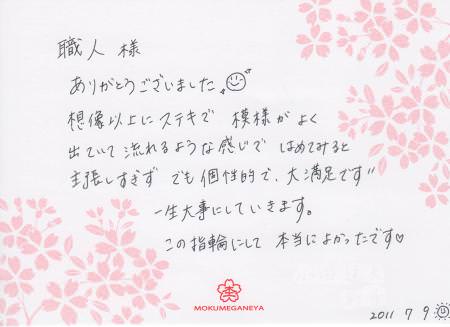 職人 様
ありがとうございました
想像以上にステキで 模様がよく
出ていて 流れるような感じで はめてみると
主張しすぎず でも個性的で、大満足です!!
一生大事にしていきます。
この指輪にして 本当によかったです♡
MOKUMEGANEYA
2011 7 9